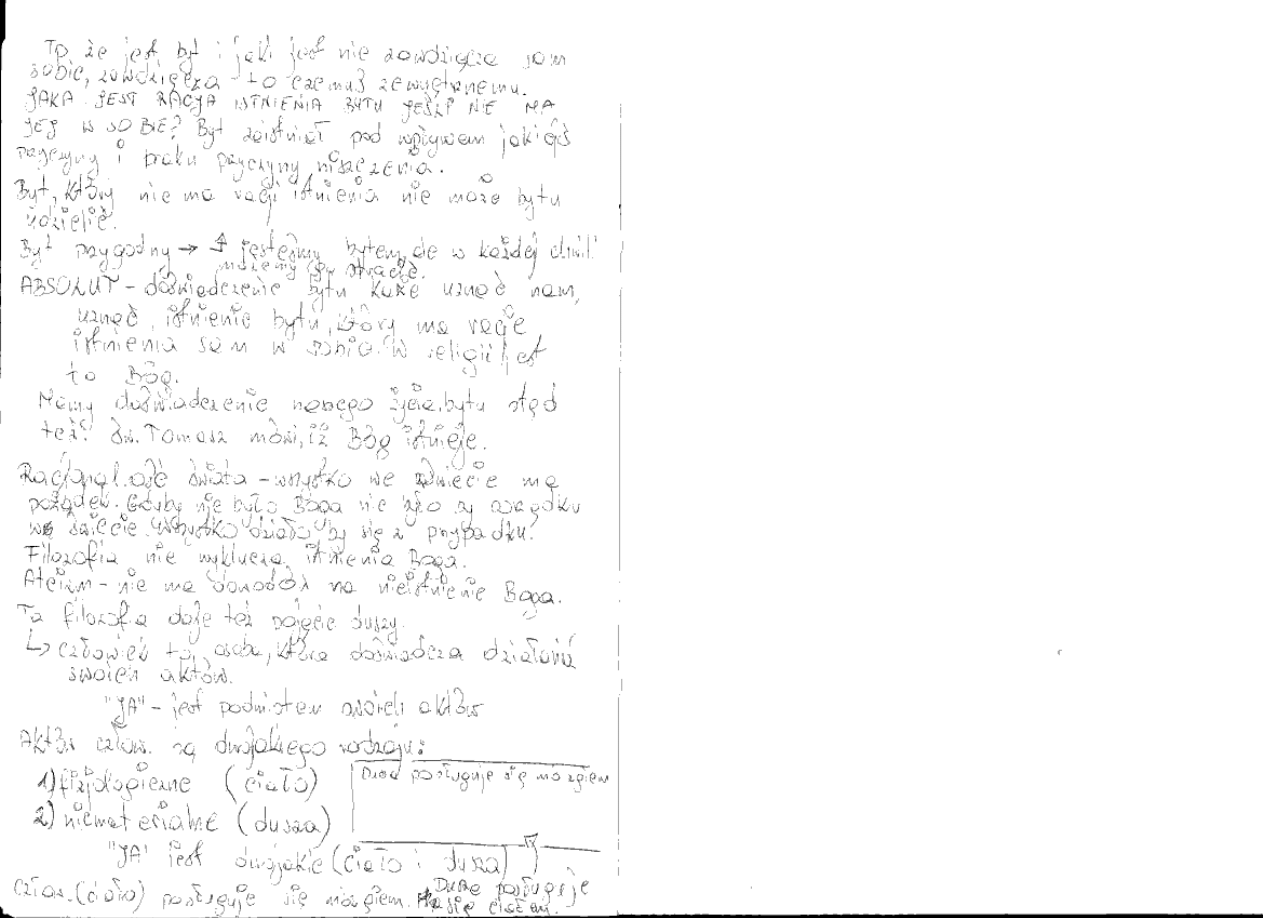 To że jest byt i jaki jest nie zawdzięcza sam
sobie, zawdzięcza to czemuś zewnętrznemu.
JAKA JEST RACJA ISTNIENIA BYTU JEŚLI NIE MA
JEJ W SOBIE? Byt zaistniał pod wpływem jakiejś
przyczyny i braku przyczyny niszczenia.
Byt, który nie ma racji istnienia nie może bytu
udzielić.
Byt przygodny → jesteśmy bytem, ale w każdej chwili
możemy go stracić.
ABSOLUT - doświadczenie bytu każe uznać nam,
uznać istnienie bytu, który ma rację
istnienia sam w sobie. W religii jest
to Bóg.
Mamy doświadczenie naszego życia, bytu stąd
też św. Tomasz mówi, iż Bóg istnieje.
Racjonalność świata - wszystko we świecie ma
porządek. Gdyby nie było Boga nie było by porządku
we świecie. Wszystko działo by się z przypadku.
Filozofia nie wyklucza istnienia Boga.
Ateizm - nie ma dowodów na nieistnienie Boga.
Ta filozofia daje też pojęcie duszy.
↳ człowiek to osoba, która doświadcza działania
swoich aktów.
"JA" - jest podmiotem swoich aktów
Aktów człow. są dwojakiego rodzaju:
1) fizjologiczne (ciało)
Duch posługuje się mózgiem
2) niematerialne (dusza)
"JA" jest dwojakie (ciało i dusza)
Człow. (ciało) posługuje się mózgiem. Dusza posługuje
się ciałem.